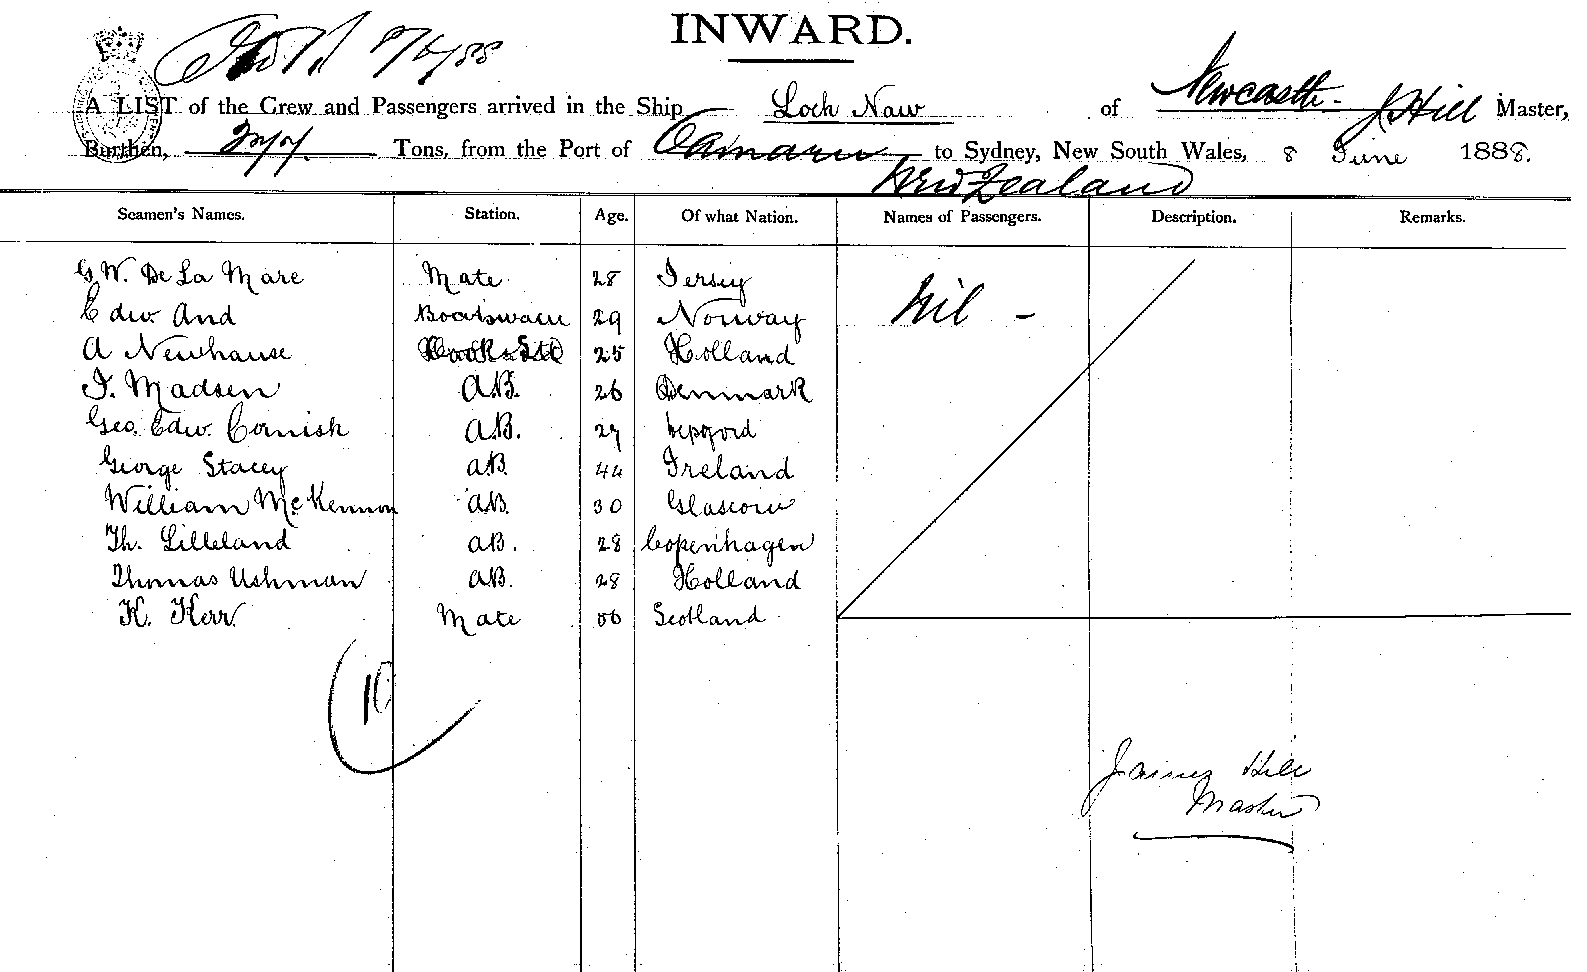 INWARD.
9/6/88
A LIST of the Crew and Passengers arrived in the Ship Loch Naw of Newcastle. J Hill Master,
Burthen, Tons, from the Port of Oamaru to Sydney, New South Wales, 8 June 1888.
New Zealand
Seamen's Names. Station. Age. Of what Nation. Names of Passengers. Description. Remarks.
G W. De La Mare Mate 28 Jersey
Edw And Boatswain 29 Norway Nil -
A Newhause Cook & Std 25 Holland
J. Madsen A.B. 26 Denmark
Geo. Edw. Cornish A.B. 27
George Stacey A.B. 44 Ireland
William McKennon A.B. 30 Glascow
Th. Lilleland A.B. 28 Copenhagen
Thomas Ushman A.B. 28 Holland
K. Kerr Mate 56 Scotland
10
James Hill
Master